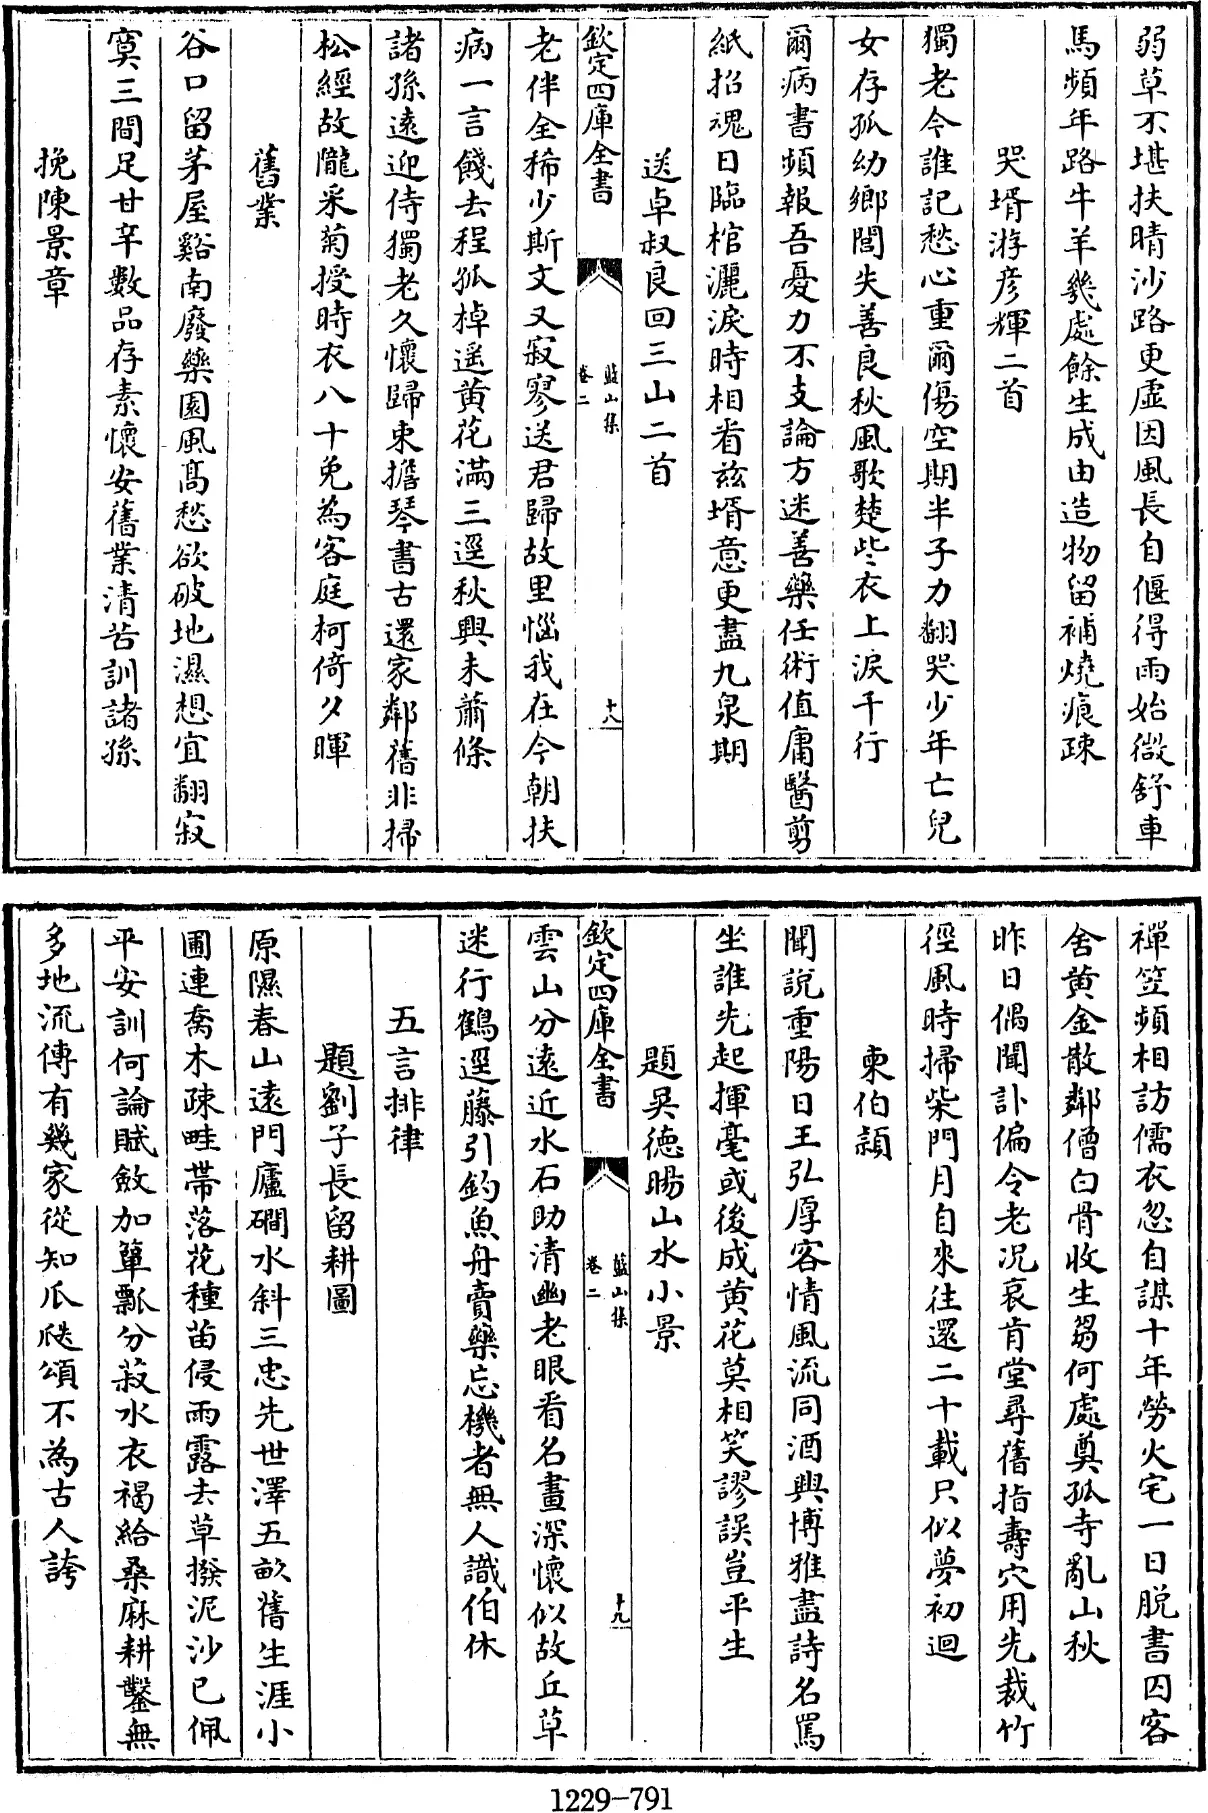 弱草不堪扶晴沙路更虚因風長自偃得雨始微舒車
馬頻年路牛羊幾處餘生成由造物留補燒痕疎
哭壻游彦輝二首
獨老今誰記愁心重爾傷空期半子力翻哭少年亡兒
女存孤幼鄉閭失善良秋風歌楚些衣上淚千行
爾病書頻報吾憂力不支論方迷善藥任術值庸醫剪
紙招魂日臨棺灑淚時相看兹壻意更盡九泉期
送卓叔良回三山二首
欽定四庫全書
藍山集
卷二
十八
老伴全稀少斯文又寂寥送君歸故里惱我在今朝扶
病一言餞去程孤棹遥黄花滿三逕秋興未蕭條
諸孫遠迎侍獨老久懷歸束擔琴書古還家鄰舊非掃
松經故隴采菊授時衣八十免為客庭柯倚夕暉
舊業
谷口留茅屋谿南廢藥園風髙愁欲破地濕想宜翻寂
寞三間足甘辛數品存素懷安舊業清苦訓諸孫
挽陳景章
禪笠頻相訪儒衣忽自謀十年勞火宅一日脱書囚客
舍黄金散鄰僧白骨收生芻何處奠孤寺亂山秋
昨日偶聞訃偏令老况哀肯堂尋舊指壽穴用先裁竹
徑風時掃柴門月自來往還二十載只似夢初迴
柬伯頴
聞説重陽日王弘厚客情風流同酒興博雅盡詩名罵
坐誰先起揮毫或後成黄花莫相笑謬誤豈平生
題吴德暘山水小景
欽定四庫全書
藍山集
卷二
十九
雲山分遠近水石助清幽老眼看名畫深懷似故丘草
迷行鶴逕藤引釣魚舟賣藥忘機者無人識伯休
五言排律
題劉子長留耕圖
原隰春山遠門廬磵水斜三忠先世澤五畝舊生涯小
圃連喬木疎畦帶落花種苗侵雨露去草撥泥沙已佩
平安訓何論賦斂加簞瓢分菽水衣褐給桑麻耕鑿無
多地流傳有幾家從知瓜瓞頌不為古人誇
1229-791